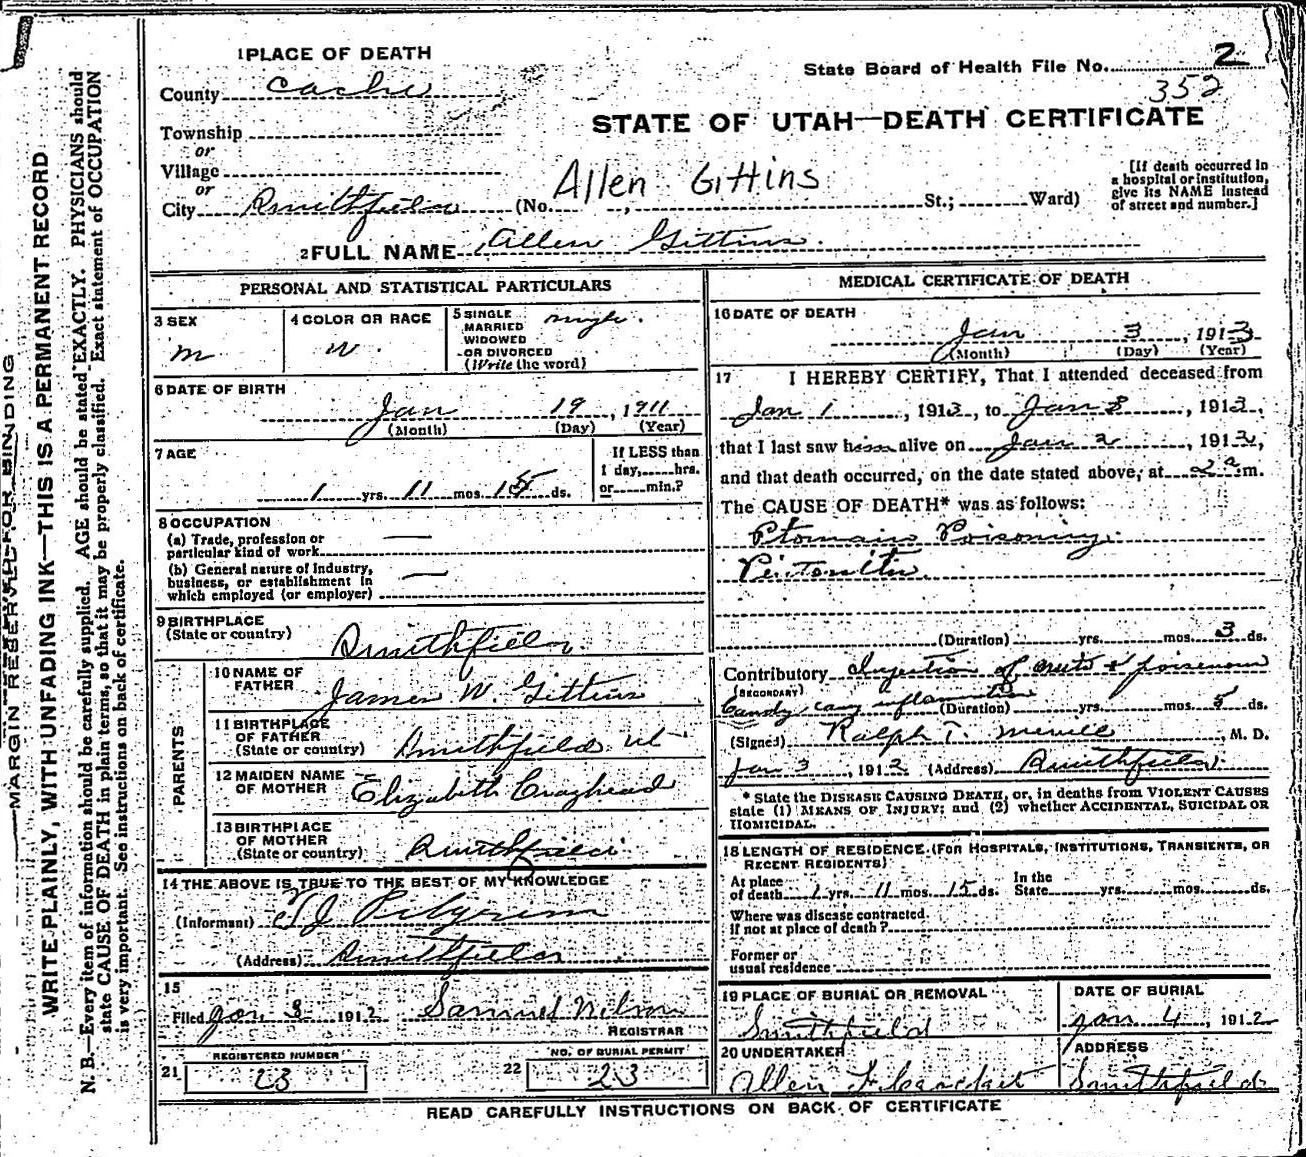 MARGIN RESERVED FOR BINDING
WRITE PLAINLY, WITH UNFADING INK—THIS IS A PERMANENT RECORD
N. B.—Every item of information should be carefully supplied. AGE should be stated EXACTLY. PHYSICIANS should
state CAUSE OF DEATH in plain terms, so that it may be properly classified. Exact statement of OCCUPATION
is very important. See instructions on back of certificate.
1 PLACE OF DEATH
County Cache
Township
or
Village
or
City Smithfield
State Board of Health File No. 2
352
STATE OF UTAH—DEATH CERTIFICATE
Allen Gittins
(No. , St.; Ward)
[If death occurred in
a hospital or institution,
give its NAME instead
of street and number.]
2 FULL NAME Allen Gittins.
PERSONAL AND STATISTICAL PARTICULARS
3 SEX
m
4 COLOR OR RACE
w.
5 SINGLE
MARRIED
WIDOWED
OR DIVORCED
(Write the word)
single.
6 DATE OF BIRTH
Jan 19, 1911
(Month) (Day) (Year)
7 AGE
1 yrs. 11 mos. 15 ds.
If LESS than
1 day, hrs.
or min.?
8 OCCUPATION
(a) Trade, profession or
particular kind of work —
(b) General nature of Industry,
business, or establishment in
which employed (or employer) —
9 BIRTHPLACE
(State or country) Smithfield
PARENTS
10 NAME OF
FATHER James W. Gittins
11 BIRTHPLACE
OF FATHER
(State or country) Smithfield Ut
12 MAIDEN NAME
OF MOTHER Elizabeth Craghead
13 BIRTHPLACE
OF MOTHER
(State or country) Smithfield
14 THE ABOVE IS TRUE TO THE BEST OF MY KNOWLEDGE
(Informant) T J Pilgrim
(Address) Smithfield
15
Filed Jan 8 1912 Samuel Nelson
REGISTRAR
21 REGISTERED NUMBER
23
22 NO. OF BURIAL PERMIT
23
MEDICAL CERTIFICATE OF DEATH
16 DATE OF DEATH
Jan 3, 1913
(Month) (Day) (Year)
17 I HEREBY CERTIFY, That I attended deceased from
Jan 1, 1913, to Jan 3, 1913,
that I last saw him alive on Jan 2, 1913,
and that death occurred, on the date stated above, at 2 a m.
The CAUSE OF DEATH* was as follows:
Ptomain Poisoning.
Peritonitis
(Duration) yrs. mos. 3 ds.
Contributory Injestion of nuts & poisenous
(SECONDARY)
Candy causing inflamation (Duration) yrs. mos. 5 ds.
(Signed) Ralph T. Merrill, M. D.
Jan 3, 1912 (Address) Smithfield.
* State the DISEASE CAUSING DEATH, or, in deaths from VIOLENT CAUSES
state (1) MEANS OF INJURY; and (2) whether ACCIDENTAL, SUICIDAL OR
HOMICIDAL.
18 LENGTH OF RESIDENCE (FOR HOSPITALS, INSTITUTIONS, TRANSIENTS, OR
RECENT RESIDENTS)
At place
of death 1 yrs. 11 mos. 15 ds.
In the
State yrs. mos. ds.
Where was disease contracted
if not at place of death?
Former or
usual residence
19 PLACE OF BURIAL OR REMOVAL
Smithfield
DATE OF BURIAL
Jan 4, 1912
20 UNDERTAKER
Allen
ADDRESS
Smithfield
READ CAREFULLY INSTRUCTIONS ON BACK OF CERTIFICATE